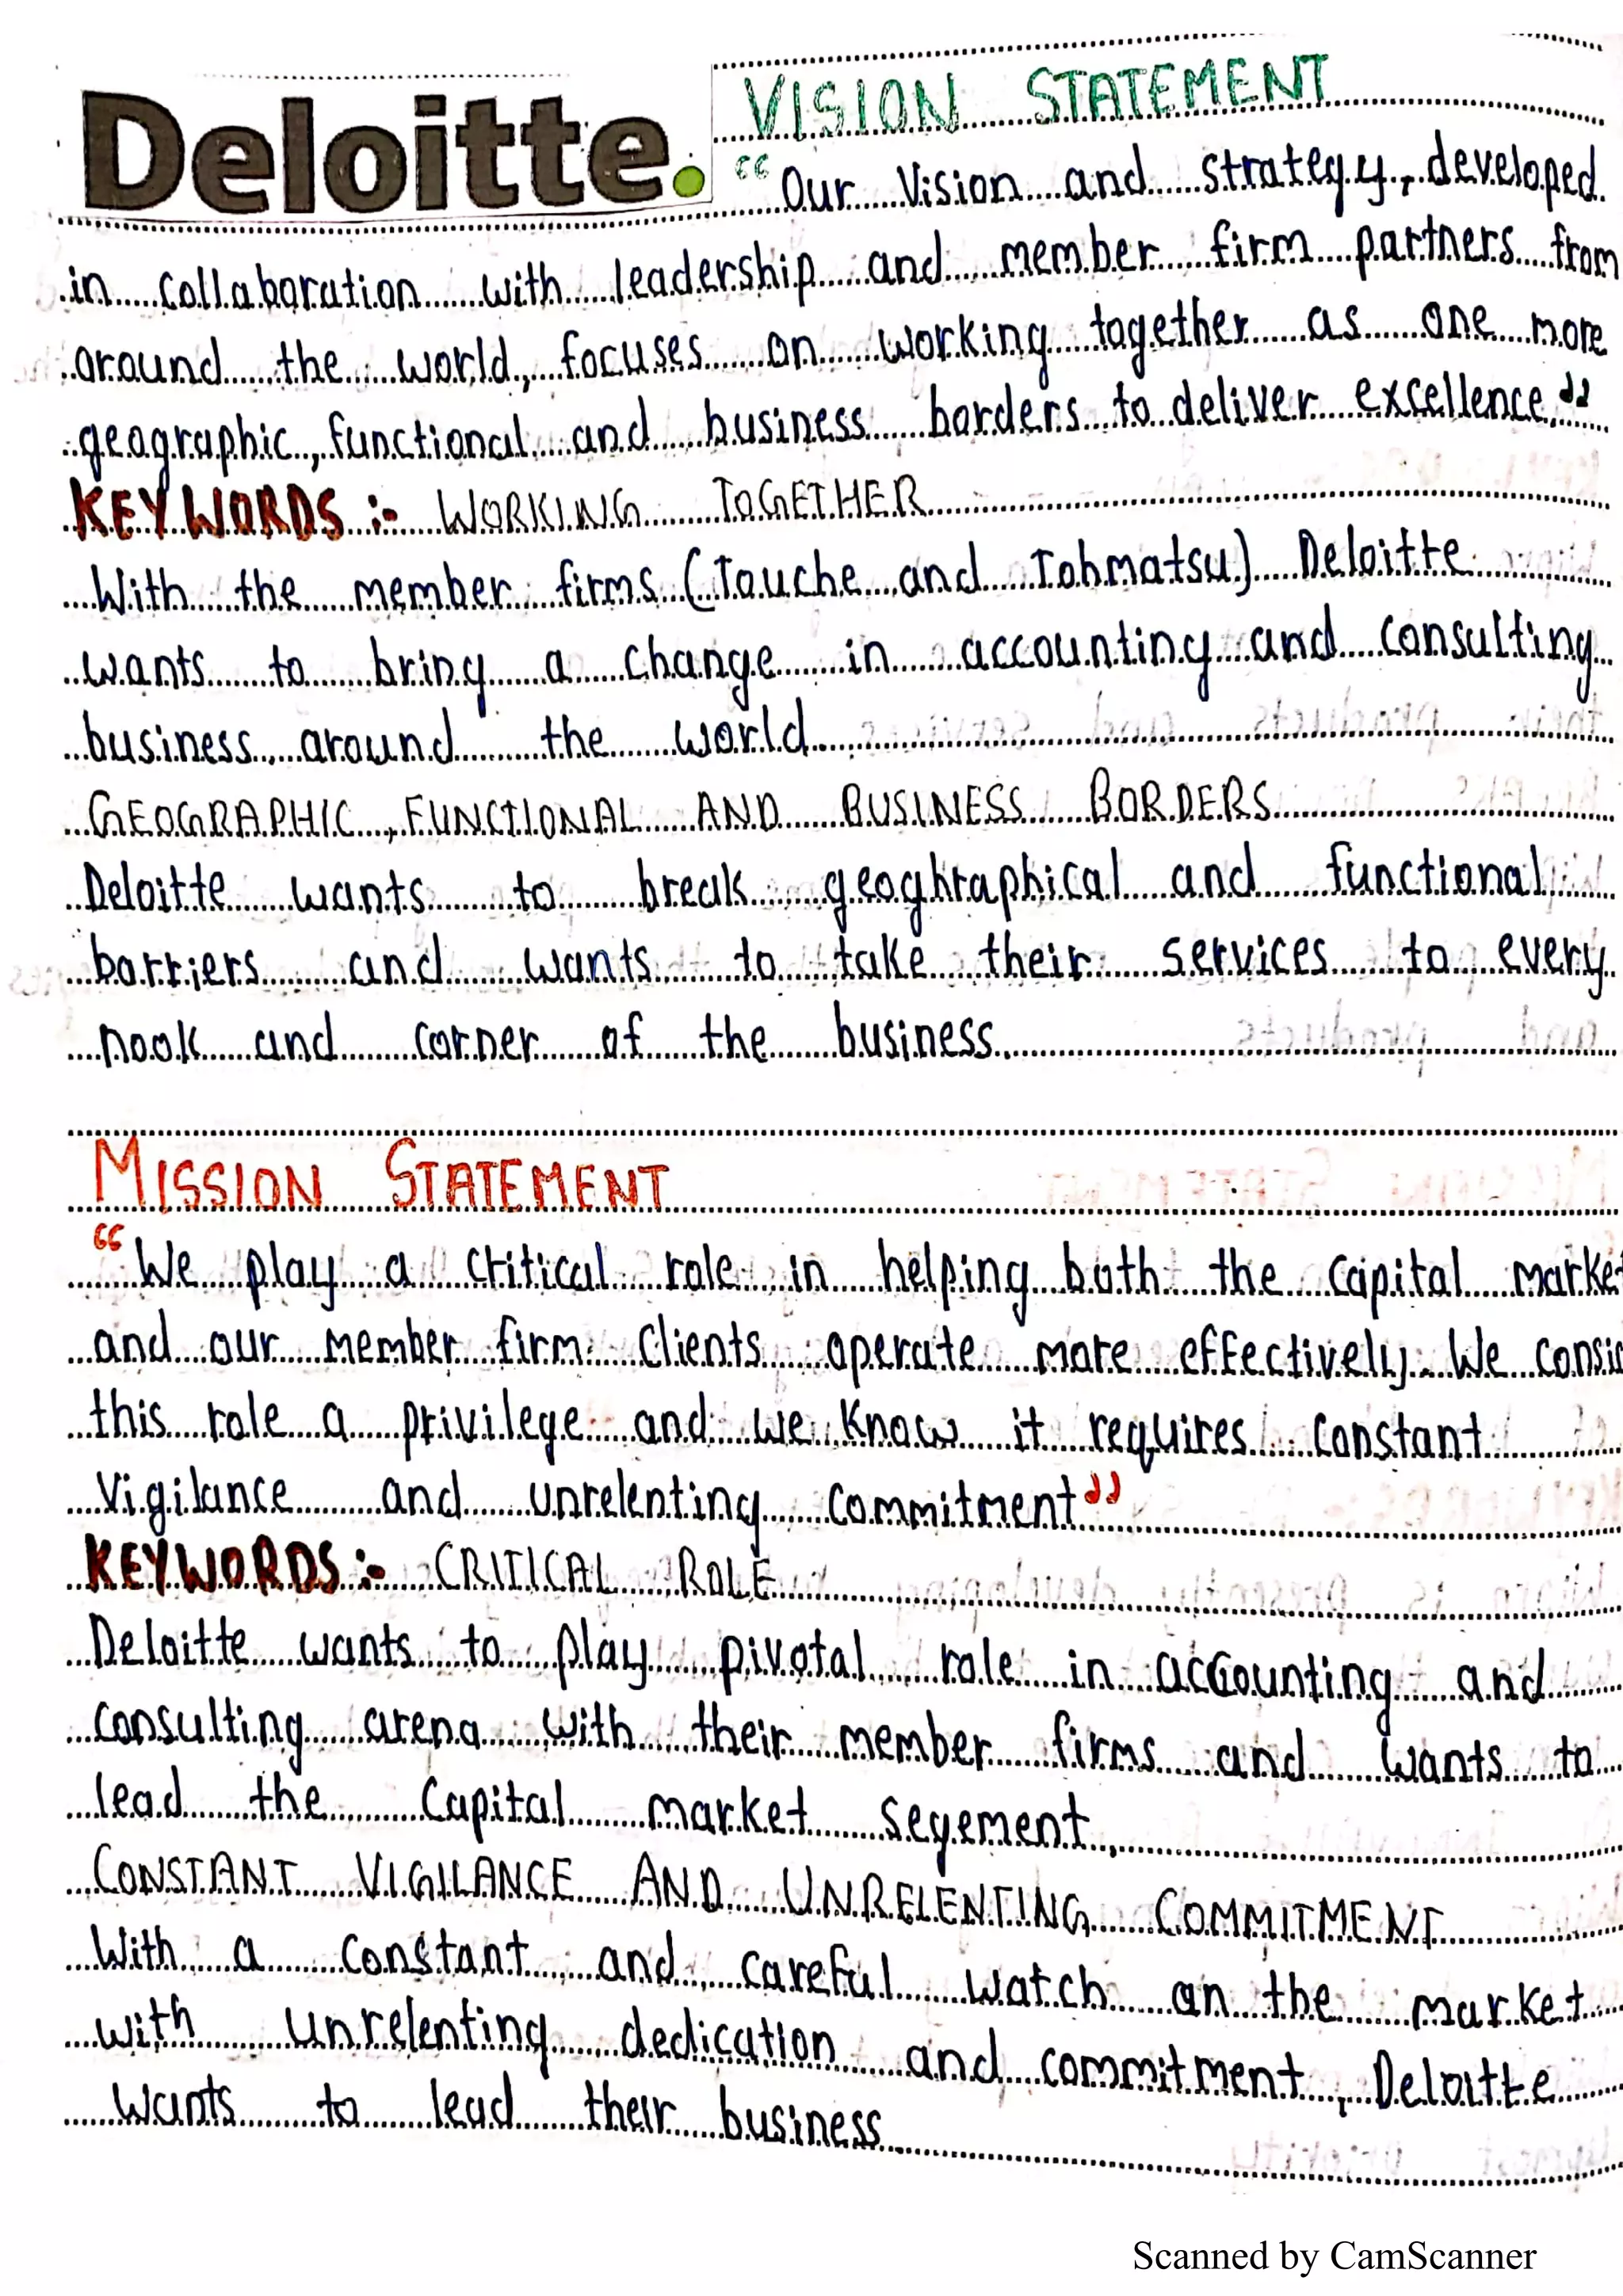 Deloitte.
VISION STATEMENT
“Our Vision and strategy, developed
in collaboration with leadership and member firm partners from
around the world, focuses on working together as one more
geographic, functional and business borders to deliver excellence”
KEYWORDS :- WORKING TOGETHER
With the member firms (Touche and Tohmatsu) Deloitte
wants to bring a change in accounting and consulting
business around the world
GEOGRAPHIC, FUNCTIONAL AND BUSINESS BORDERS
Deloitte wants to break geoghraphical and functional
barriers and wants to take their services to every
nook and corner of the business.
MISSION STATEMENT
“We play a critical role in helping both the capital market
and our member firm clients operate more effectively. We consid
this role a privilege and we know it requires constant
vigilance and unrelenting commitment”
KEYWORDS :- CRITICAL ROLE
Deloitte wants to play pivotal role in accounting and
consulting arena with their member firms and wants to
lead the capital market segement
CONSTANT VIGILANCE AND UNRELENTING COMMITMENT
With a constant and careful watch on the market
with unrelenting dedication and commitment, Deloitte
wants to lead their business
Scanned by CamScanner